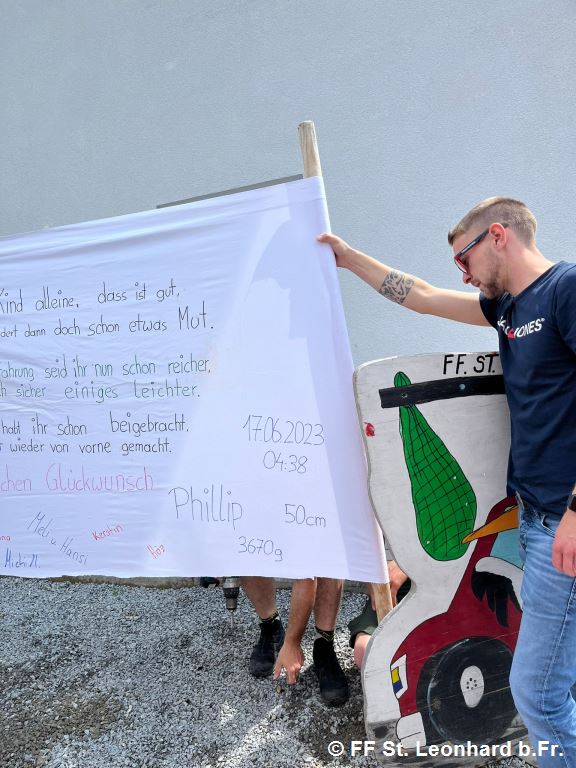 Kind alleine, dass ist gut,
dert dann doch schon etwas Mut.
fahrung seid ihr nun schon reicher,
ch sicher einiges leichter.
habt ihr schon beigebracht.
wieder von vorne gemacht.
chen Glückwunsch
17.06.2023
04:38
Phillip
50cm
3670g
Mel u Hansi
Kerstin
FF ST.
JONES®
© FF St. Leonhard b.Fr.